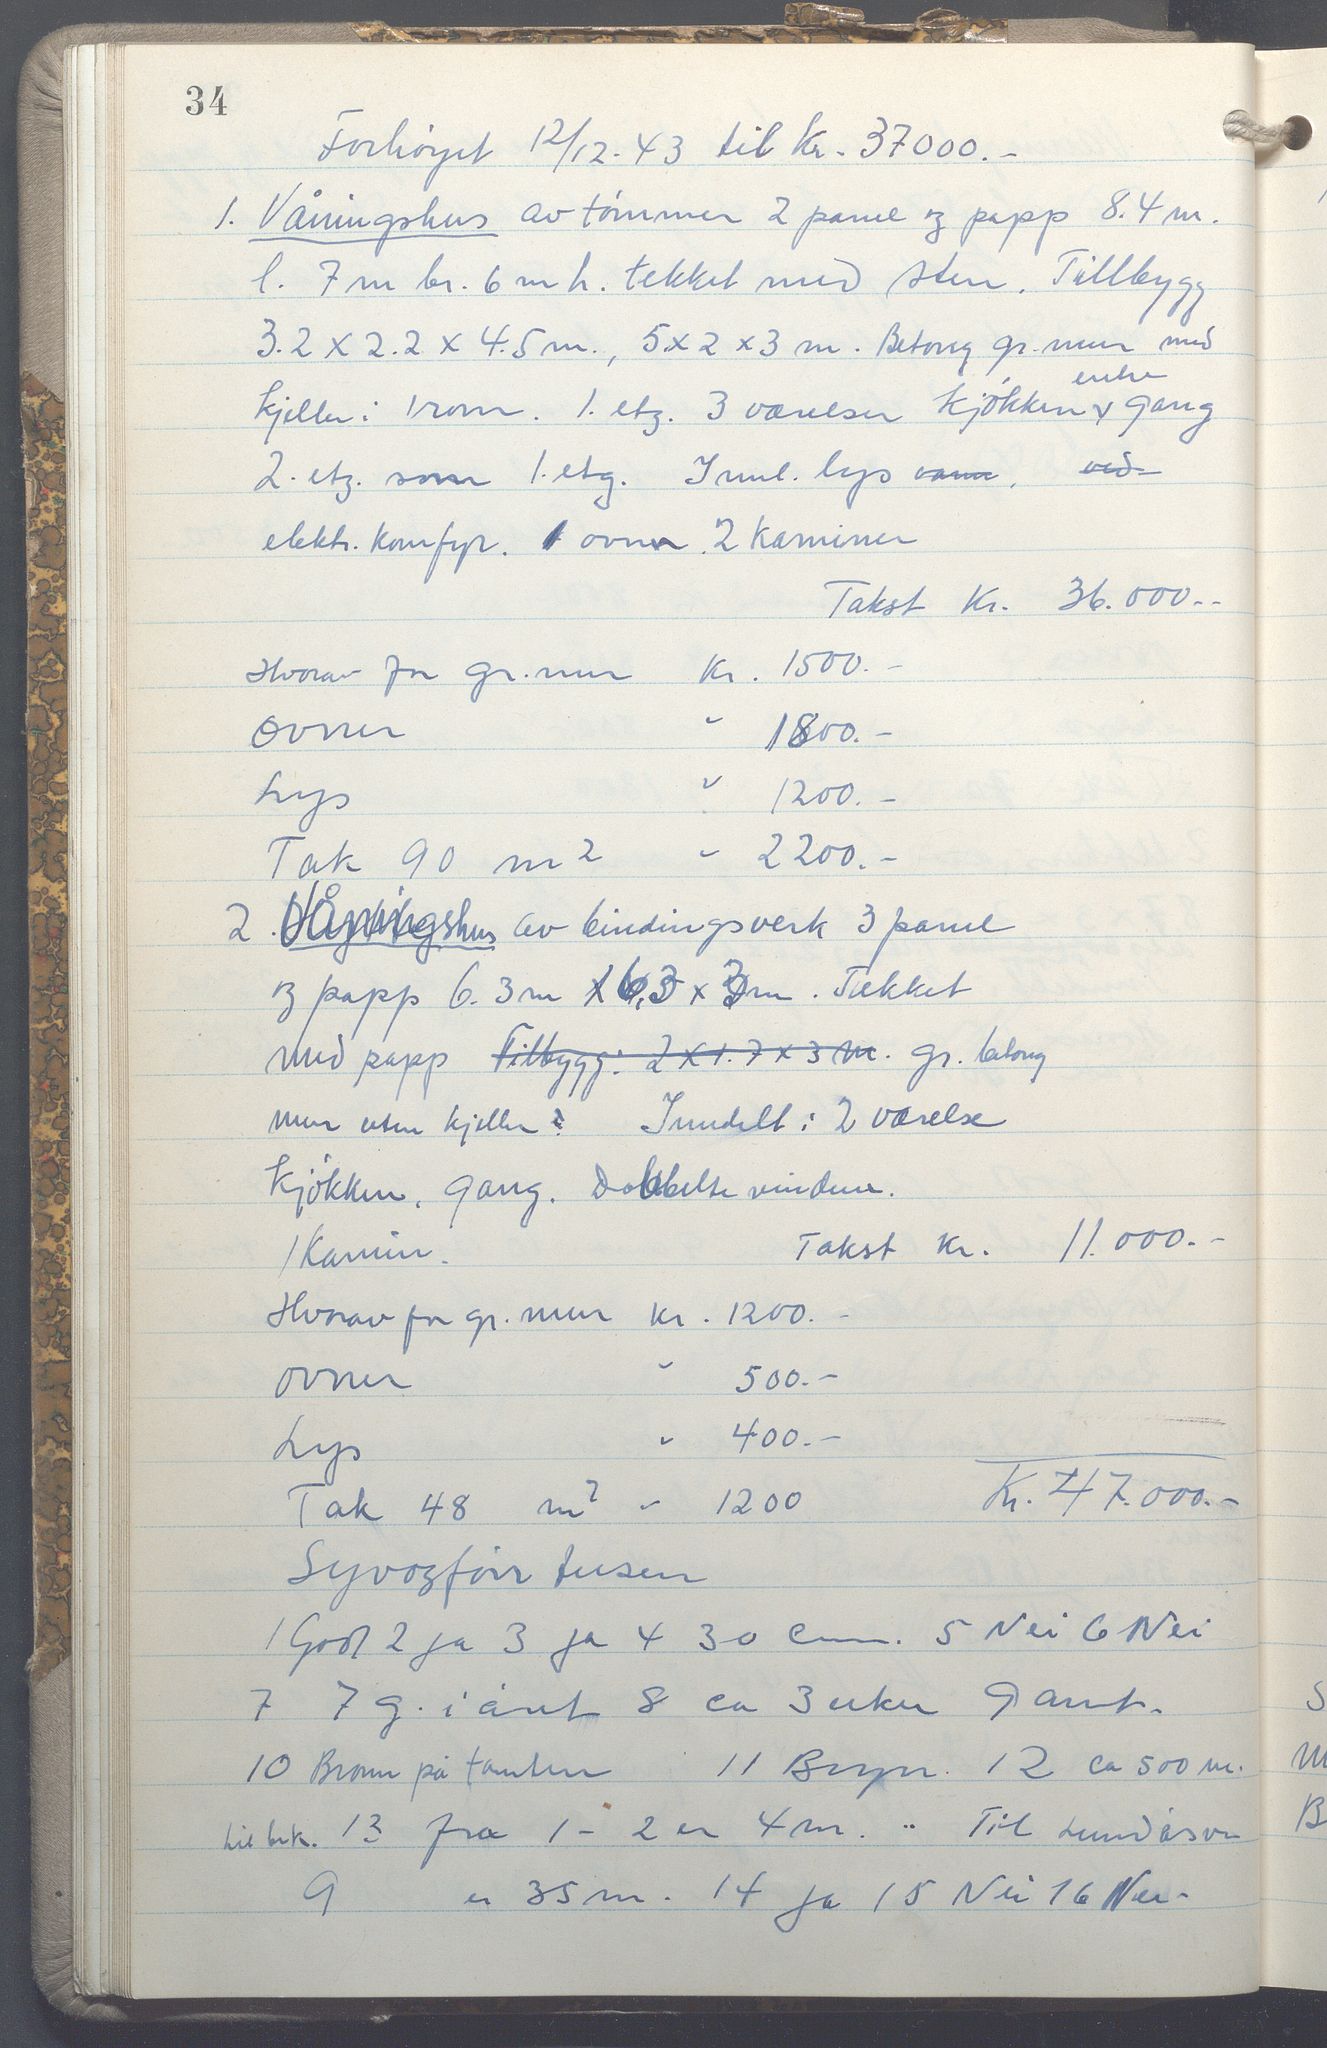 34
Forhöyet 12/12.43 til Kr. 37000.-
1. Våningshus av tömmer 2 panel og papp 8.4 m.
l. 7 m br. 6 m h. tekket med sten. Tillbygg
3.2 x 2.2 x 4.5 m., 5 x 2 x 3 m. Betong gr. mur med
kjeller i 1 rom. 1. etg. 3 værelser kjökken, entre gang
2. etg. som 1. etg. Innl. lys vann. ved
elektr. komfyr. 1 ovn 2 Kaminer
Takst Kr. 36.000.-
Hvorav for gr. mur Kr. 1500.-
Ovner " 1800.-
Lys " 1200.-
Tak 90 m2 " 2200.-
2. Våningshus av bindingsverk 3 panel
og papp 6.3 m x 6,3 x 3 m. Tekket
med papp Tilbygg: 2 x 1.7 x 3 m. gr. betong
mur uten kjeller Inndelt i 2 værelse
kjökken, gang. Dobbelte vinduer.
1 Kamin. Takst Kr. 11.000.-
Hvorav for gr. mur Kr. 1200.-
ovner " 500.-
Lys " 400.-
Tak 48 m2 " 1200 Kr. 47.000.-
Syvogförr tusen
1 God 2 ja 3 ja 4 30 cm. 5 Nei 6 Nei
7 7 g. i året 8 ca 3 uker 9 amt.
10 Brönn på tomten 11 Bryn. 12 ca 500 m.
til bek. 13 fra 1 - 2 er 4 m. " Til
9 er 35 m. 14 ja 15 Nei 16 Nei-